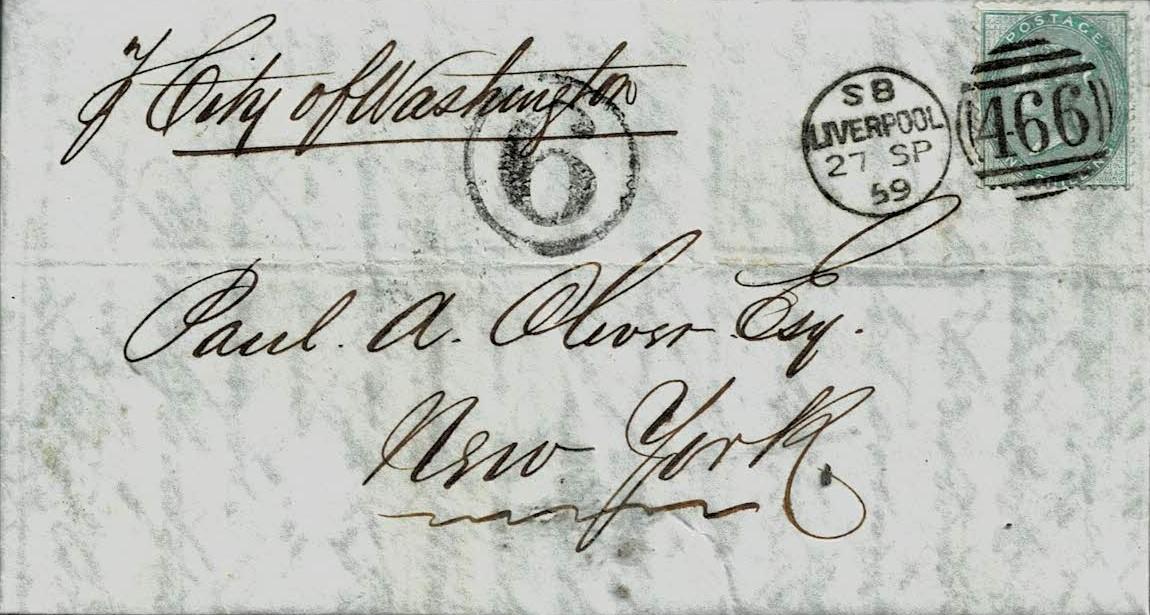 City of Washington
6
SB
LIVERPOOL
27 SP
59
POSTAGE
466
Paul. A. Oliver Esq.
New York